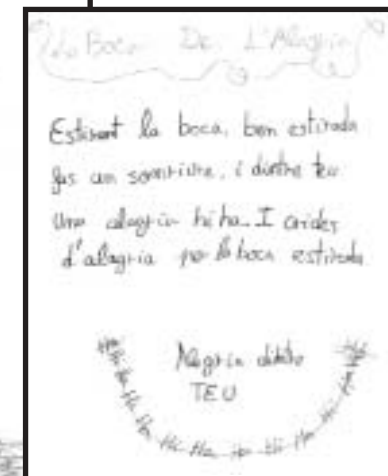 La Boca De L'Alegria
Estirant la boca, ben estirada
fas un somriure, i dintre teu
una alegria hi ha. I crides
d'alegria per la boca estirada
Alegria dintre
TEU
Ha Ha Ha Ha Ha Ha Ha Ha Ha Ha